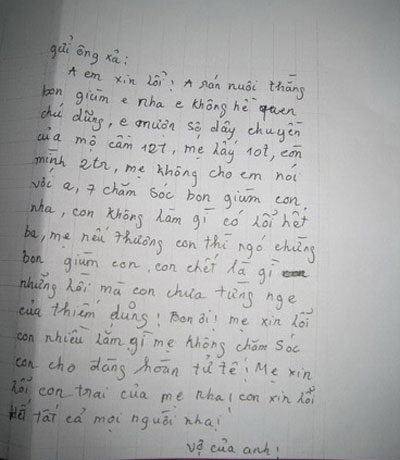 gửi ông xả:
A em xin lổi! A rán nuôi thằng
bon giùm e nha e không hề quen
chú dũng, e mượn sợ dây chuyền
của mợ cầm 12t, mẹ lấy 10t, còn
mình 2tr, mẹ không cho em nói
với a, 7 chăm sóc bon giùm con
nha, con không làm gì có lổi hết
ba, mẹ nếu thương con thì ngó chừng
bon giùm con, con chết là gì
những lời mà con chưa từng nge
của thiếm dũng! Bon ơi! mẹ xin lổi
con nhiều lắm gì mẹ không chăm sóc
con cho đàng hoàn tử tế! Mẹ xin
lổi con trai của mẹ nha! con xin lổi
tất cả mọi người nha!
vợ của anh!